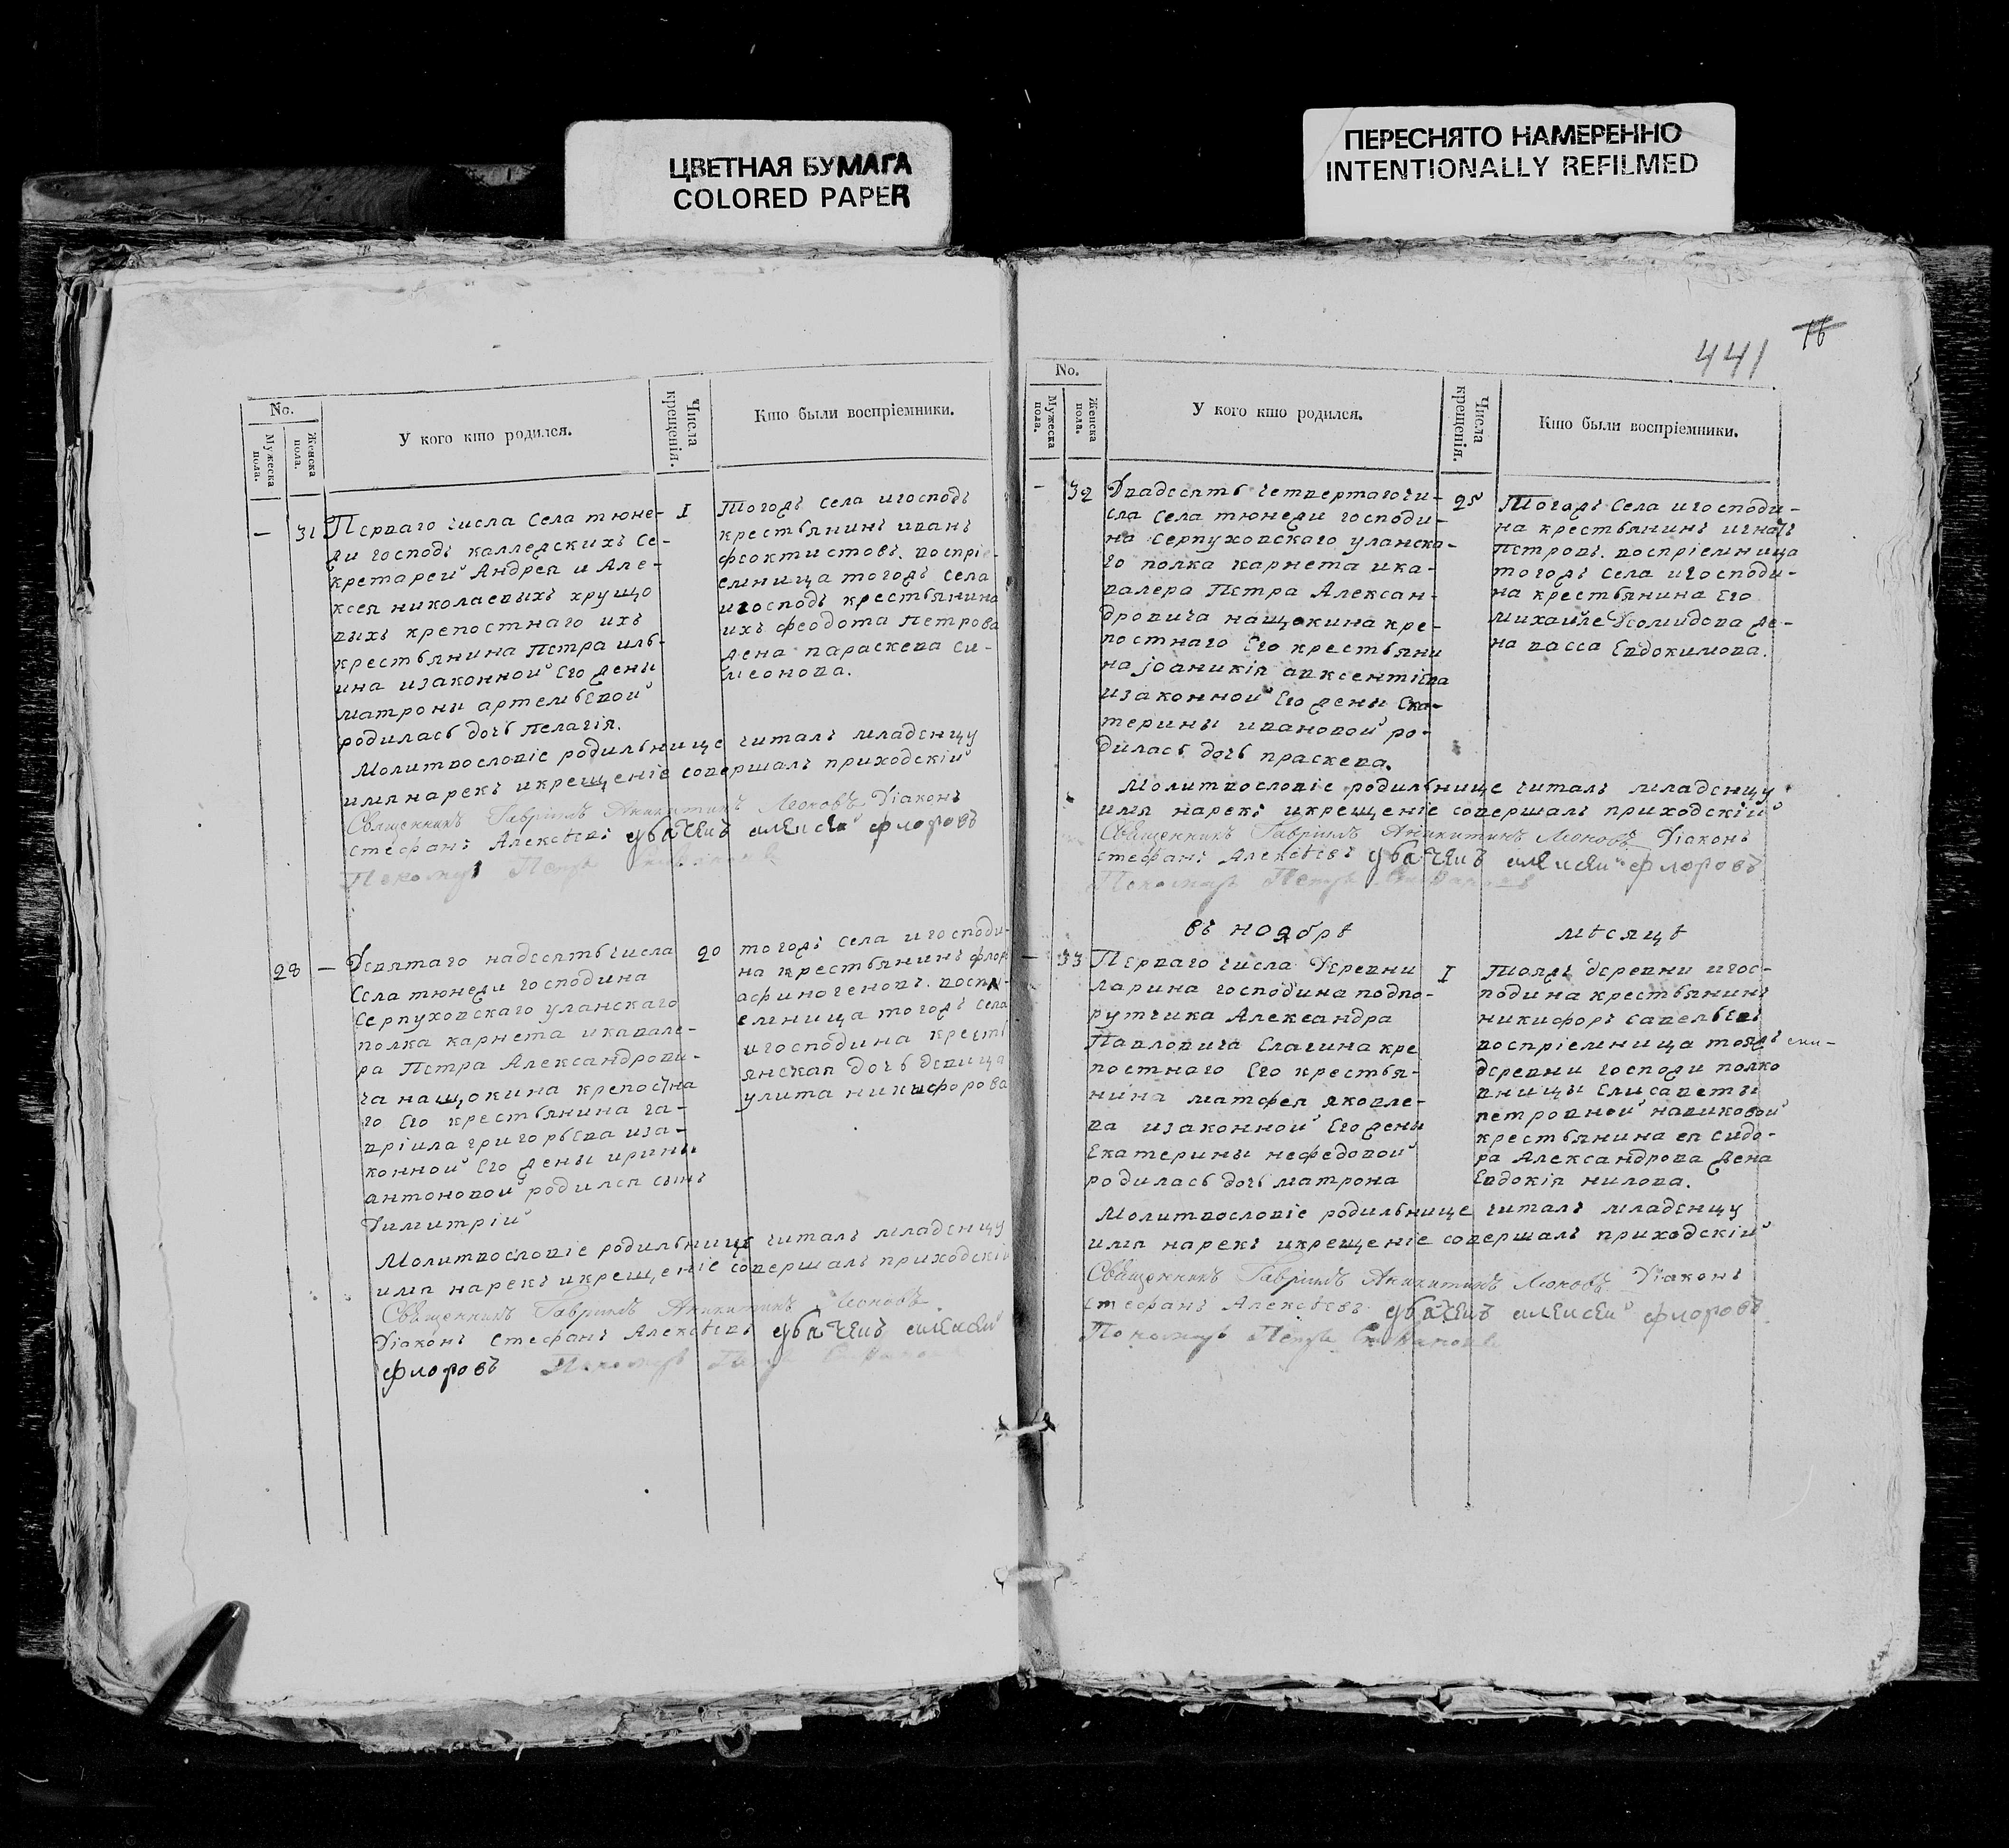 ЦВЕТНАЯ БУМАГА
COLORED PAPER
ПЕРЕСНЯТО НАМЕРЕННО
INTENTIONALLY REFILMED
No.
Мужеска пола.
Женска пола.
У кого кто родился.
Числа крещенія.
Кто были воспріемники.
— 31
Перваго числа села тюне-
жи господъ каллежскихъ се-
кретарей Андрея и Але-
ксея николаевыхъ хрущо
выхъ крепостнаго ихъ
крестьянина Петра иль-
ина изаконной Его жены
матроны артемьевой
родилась дочь пелагія.
I
Тогожъ села игосподъ
крестьянинъ иванъ
феоктистовъ. воспріе-
емница тогожъ села
игосподъ крестьянина
ихъ феодота петрова
жена параскева си-
меонова.
Молитвословіе родильнице читалъ младенцу
имя нарекъ икрещеніе совершалъ приходскій
Священникъ Гавріилъ Аникитинъ Леоновъ Діаконъ
стефанъ Алексѣевъ дьячекъ алексей флоровъ
Пономарь Петръ
28 —
Девятаго надесять числа
Села тюнежи господина
Серпуховскаго уланскаго
полка карнета икавале-
ра Петра Александрови-
ча нащокина крепостна
го Его крестьянина га-
вріила григорьева иза-
конной Его жены ирины
антоновой родился сынъ
Димитрій
20
тогожъ села игосподи-
на крестьянинъ флор
афиногеновъ. воспрі-
емница тогожъ села
игосподина кресть
янская дочь девица
улита никифорова
Молитвословіе родильнице читалъ младенцу
имя нарекъ икрещеніе совершалъ приходскій
Священникъ Гавріилъ Аникитинъ Леоновъ
Діаконъ стефанъ Алексѣевъ дьячекъ алексей
флоровъ Пономарь Петръ
441
16
No.
Мужеска пола.
Женска пола.
У кого кто родился.
Числа крещенія.
Кто были воспріемники.
— 32
Двадесять четвертагочи-
сла села тюнежи господи-
на серпуховскаго уланска-
го полка карнета ика-
валера Петра Алексан-
дровича нащокина кре-
постнаго Его крестьяни
на іоаникія авксентіева
изаконной Его жены Ека-
терины ивановой ро-
дилась дочь праскева.
25
Тогожъ села игосподи-
на крестьянинъ игнатъ
петровъ. воспріемница
тогожъ села игосподи-
на крестьянина Его
михайле Деомидова же-
на васса Евдокимова.
Молитвословіе родильнице читалъ младенцу
имя нарекъ икрещеніе совершалъ приходскій
Священникъ Гавріилъ Аникитинъ Леоновъ Діаконъ
стефанъ Алексѣевъ дьячекъ алексей флоровъ
Пономарь Петръ
въ ноябрѣ мѣсяцѣ
— 33
Перваго числа Деревни
ларина господина подпо-
рутчика Александра
Павловича Елагина кре
постнаго Его крестья-
нина матфея яковле-
ва изаконной Его жены
Екатерины нефедовой
родилась дочь матрона
I
Тояжъ деревни игос-
подина крестьянинъ
никифоръ савельевъ
воспріемница тояжъ
деревни госпожи полко
вницы Елисаветы
петровной навиковой
крестьянина ея сидо-
ра Александрова жена
Евдокія нилова.
Молитвословіе родильнице читалъ младенцу
имя нарекъ икрещеніе совершалъ приходскій
Священникъ Гавріилъ Аникитинъ Леоновъ Діаконъ
стефанъ Алексѣевъ дьячекъ алексей флоровъ
Пономарь Петръ